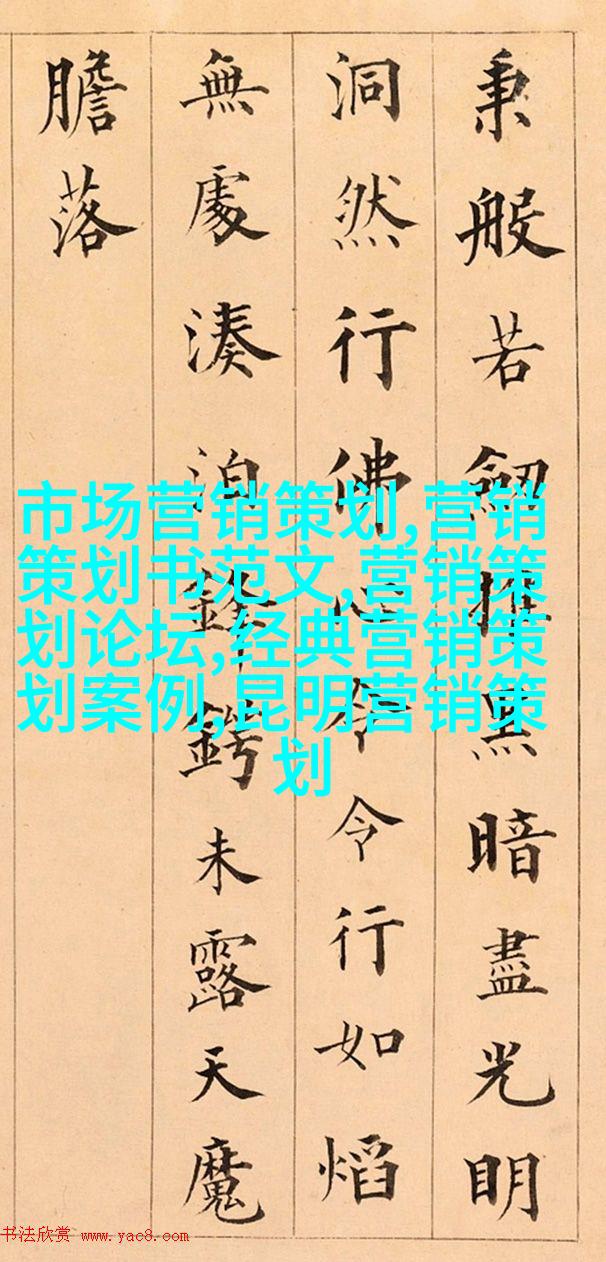 秉般若劒摧黑暗盡光明
洞然行佛心命令行如熖
無處湊泊鋒鍔未露天魔
膽落
市场营销策划,营销
策划书范文,营销策
划论坛,经典营销策
划案例,昆明营销策
划
书法欣赏 www.yac8.com